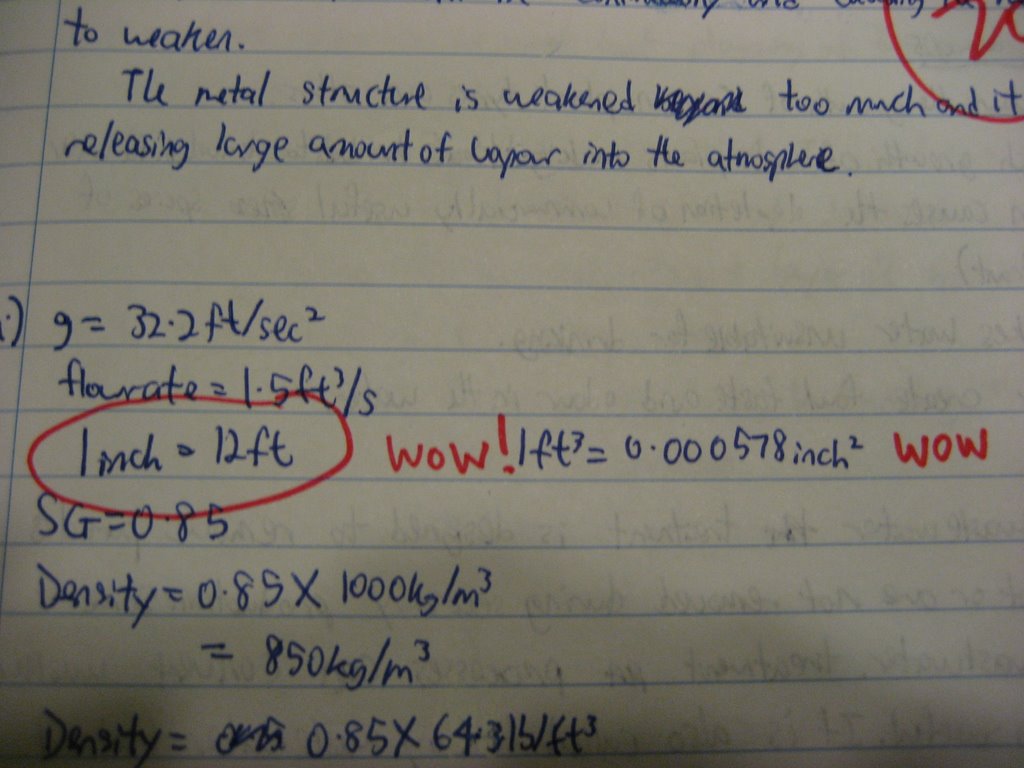 to weaken.
The metal structure is weakened too much and it
releasing large amount of vapour into the atmosphere.
i) g = 32.2 ft/sec²
flowrate = 1.5 ft³/s
1 inch = 12 ft WOW! 1 ft³ = 0.000578 inch² WOW
SG = 0.85
Density = 0.85 X 1000 kg/m³
= 850 kg/m³
Density = 0.85 X 64.3 lb/ft³